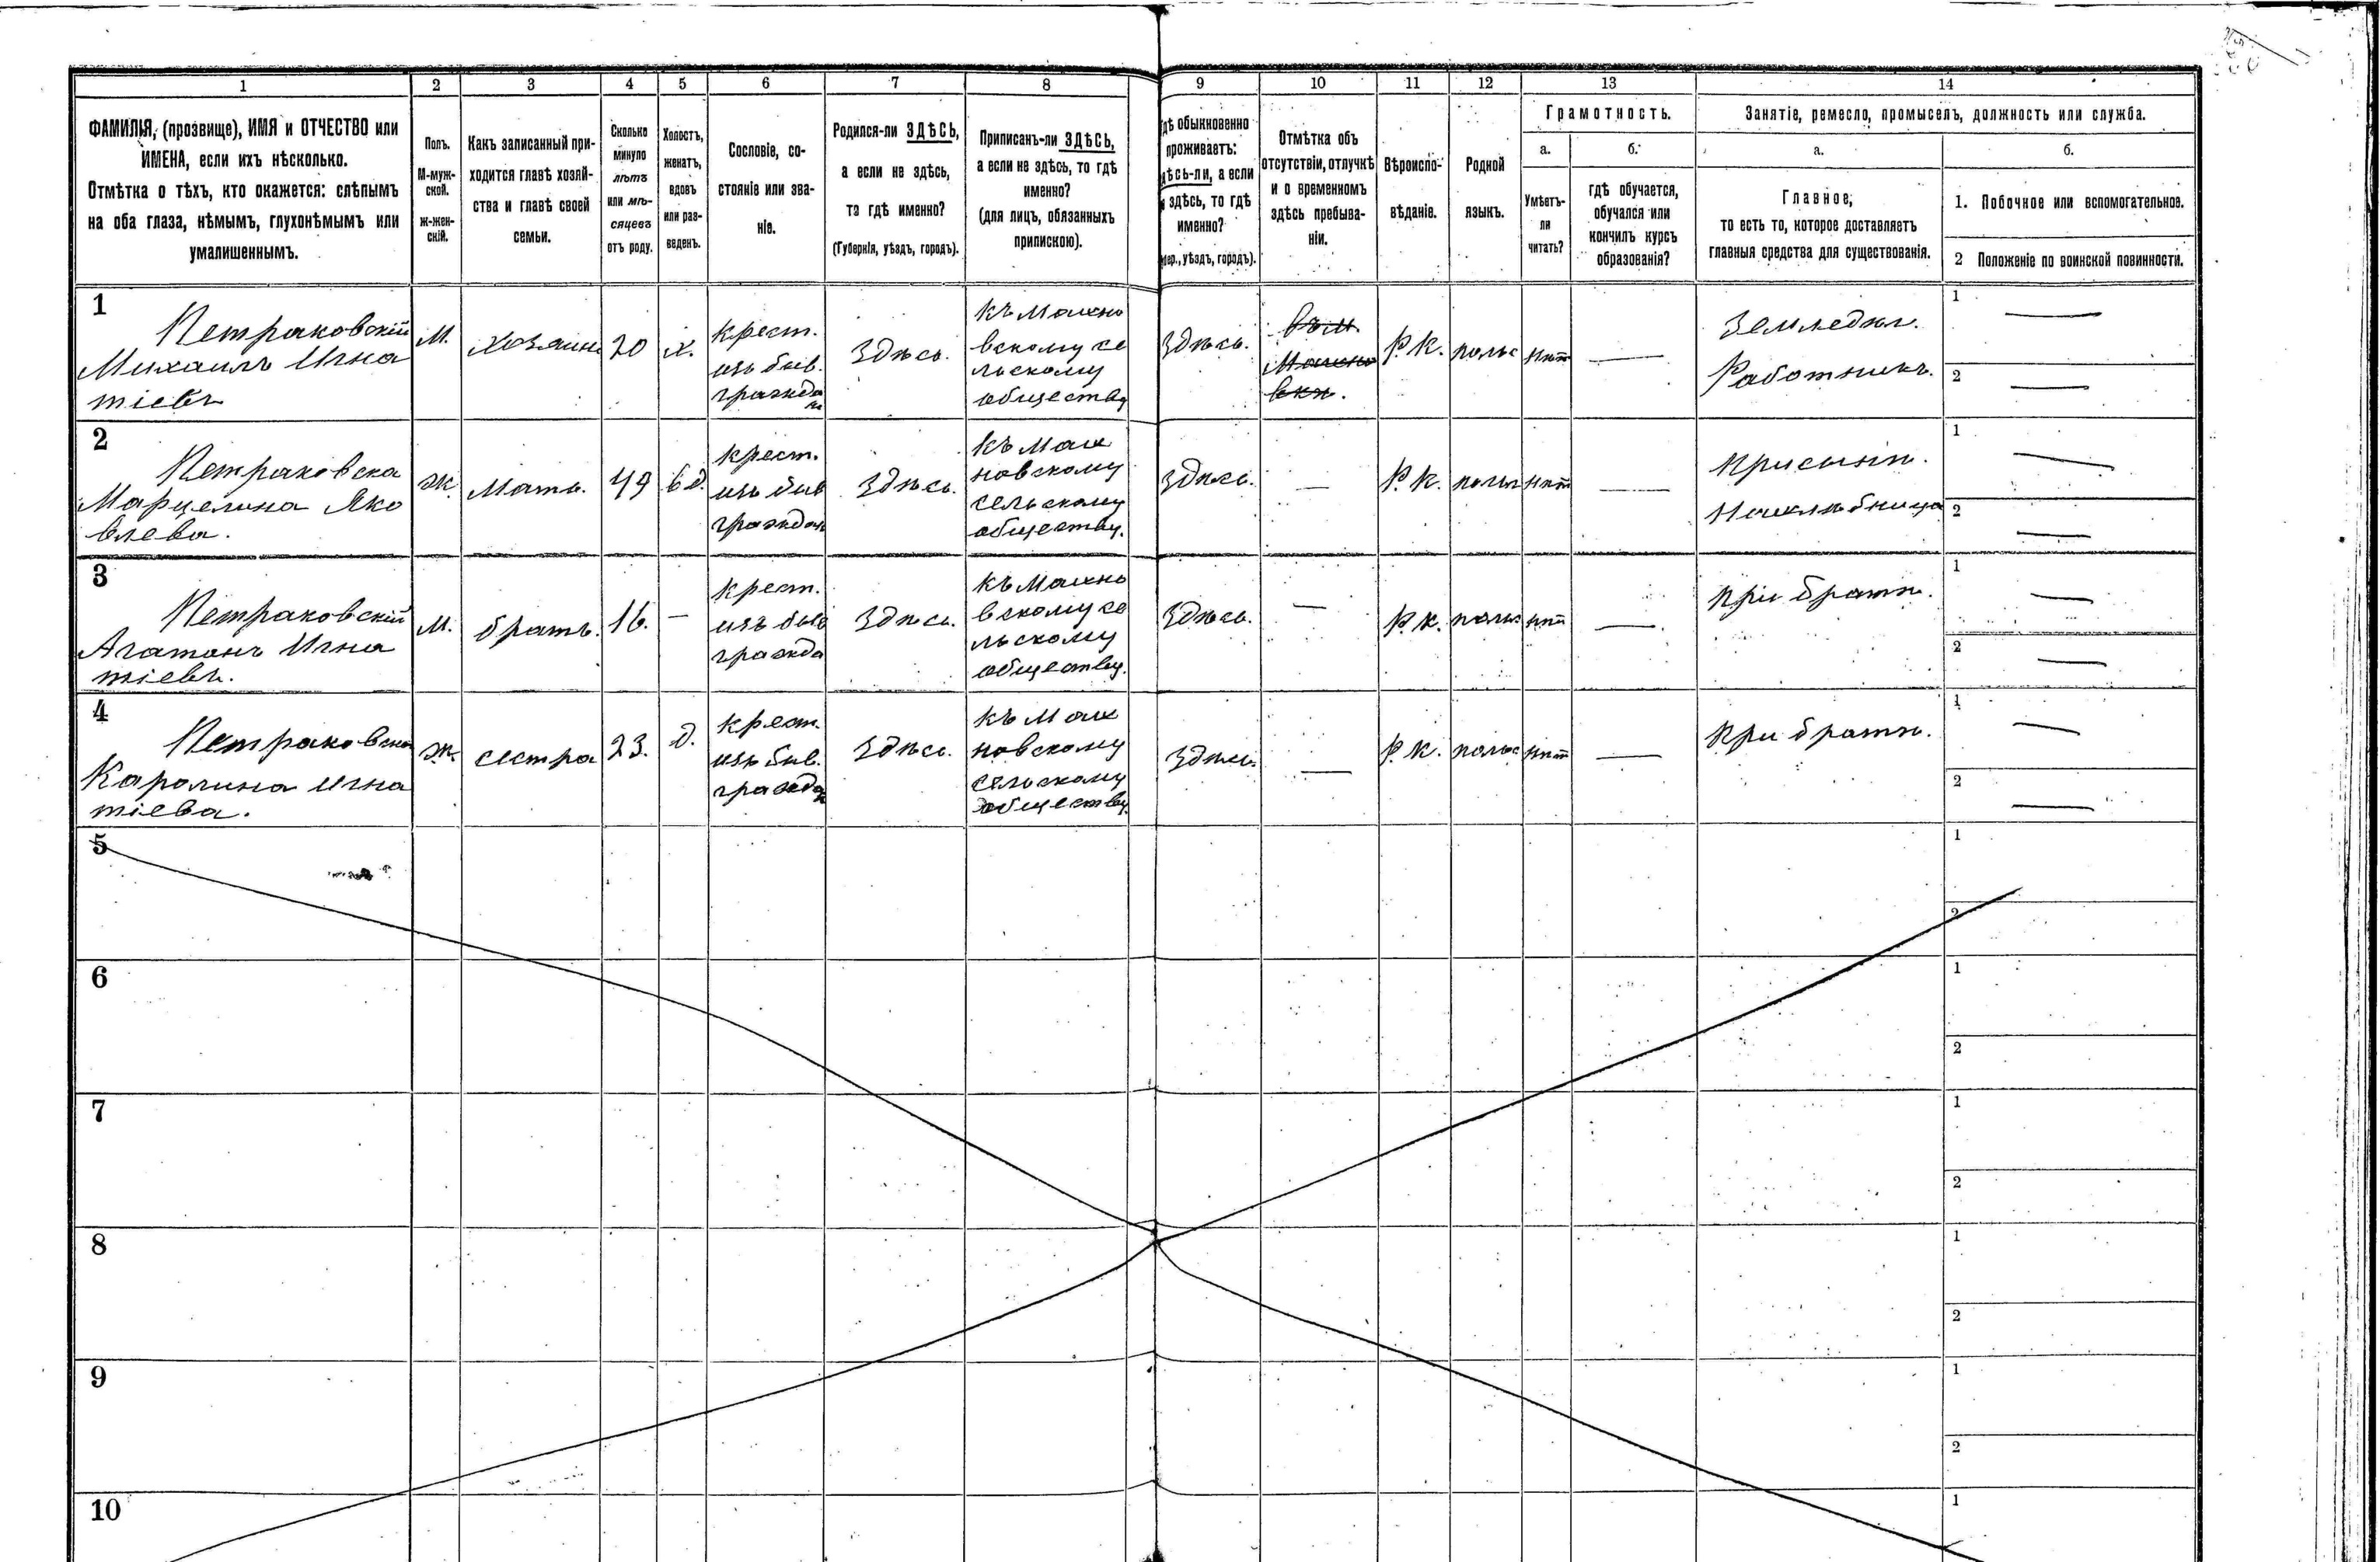 1 2 3 4 5 6 7 8 9 10 11 12 13 14
ФАМИЛІЯ, (прозвище), ИМЯ и ОТЧЕСТВО или
ИМЕНА, если ихъ нѣсколько.
Отмѣтка о тѣхъ, кто окажется: слѣпымъ
на оба глаза, нѣмымъ, глухонѣмымъ или
умалишеннымъ.
Полъ.
М-муж-
ской.
Ж-жен-
скій.
Какъ записанный при-
ходится главѣ хозяй-
ства и главѣ своей
семьи.
Сколько
минуло
лѣтъ
или мѣ-
сяцевъ
отъ роду.
Холостъ,
женатъ,
вдовъ
или раз-
веденъ.
Сословіе, со-
стояніе или зва-
ніе.
Родился-ли ЗДѢСЬ,
а если не здѣсь,
то гдѣ именно?
(Губернія, уѣздъ, городъ).
Приписанъ-ли ЗДѢСЬ,
а если не здѣсь, то гдѣ
именно?
(для лицъ, обязанныхъ
припискою).
дѣ обыкновенно
проживаетъ:
дѣсь-ли, а если
здѣсь, то гдѣ
именно?
уѣздъ, городъ).
Отмѣтка объ
отсутствіи, отлучкѣ
и о временномъ
здѣсь пребыва-
ніи.
Вѣроиспо-
вѣданіе.
Родной
языкъ.
Грамотность.
а.
Умѣетъ-
ли
читать?
б.
гдѣ обучается,
обучался или
кончилъ курсъ
образованія?
Занятіе, ремесло, промыселъ, должность или служба.
а.
Главное,
то есть то, которое доставляетъ
главныя средства для существованія.
б.
1. Побочное или вспомогательное.
2 Положеніе по воинской повинности.
1
Петраковскій
Михаилъ Игна
тіевъ
М.
хозяинъ
20
х.
крест.
изъ быв.
гражда
н
Здѣсь.
къ Машно
вскому се
льскому
обществу
Здѣсь.
въ м.
Машно
вкѣ.
Р.К.
польс
нѣт
—
Земледѣл.
Работникъ.
1 —
2 —
2
Петраковска
Марцелина Яко
влева.
Ж.
Мать.
49
вд.
крест.
изъ быв
граждан
Здѣсь.
къ Маш
новскому
сельскому
обществу.
Здѣсь.
—
Р.К.
польс
нѣт
—
при сынѣ.
Нахлѣбница
1 —
2 —
3
Петраковскій
Агатонъ Игна
тіевъ.
М.
братъ.
16.
—
крест.
изъ быв
гражда
Здѣсь.
къ Машно
вскому се
льскому
обществу.
Здѣсь.
—
Р.К.
польс
нѣт
—
при братѣ.
1 —
2 —
4
Петраковска
Каролина Игна
тіева.
Ж.
сестра
23.
д.
крест.
изъ быв.
граждан
Здѣсь.
къ Маш
новскому
сельскому
обществу.
Здѣсь.
—
Р.К.
польс
нѣт
—
при братѣ.
1 —
2 —
5
1
2
6
1
2
7
1
2
8
1
2
9
1
2
10
1